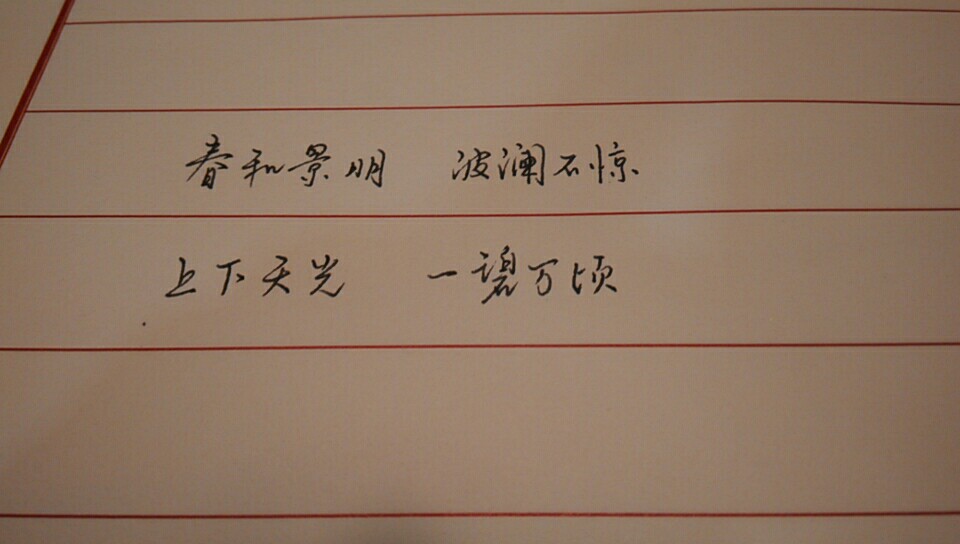 春和景明 波澜不惊
上下天光 一碧万顷